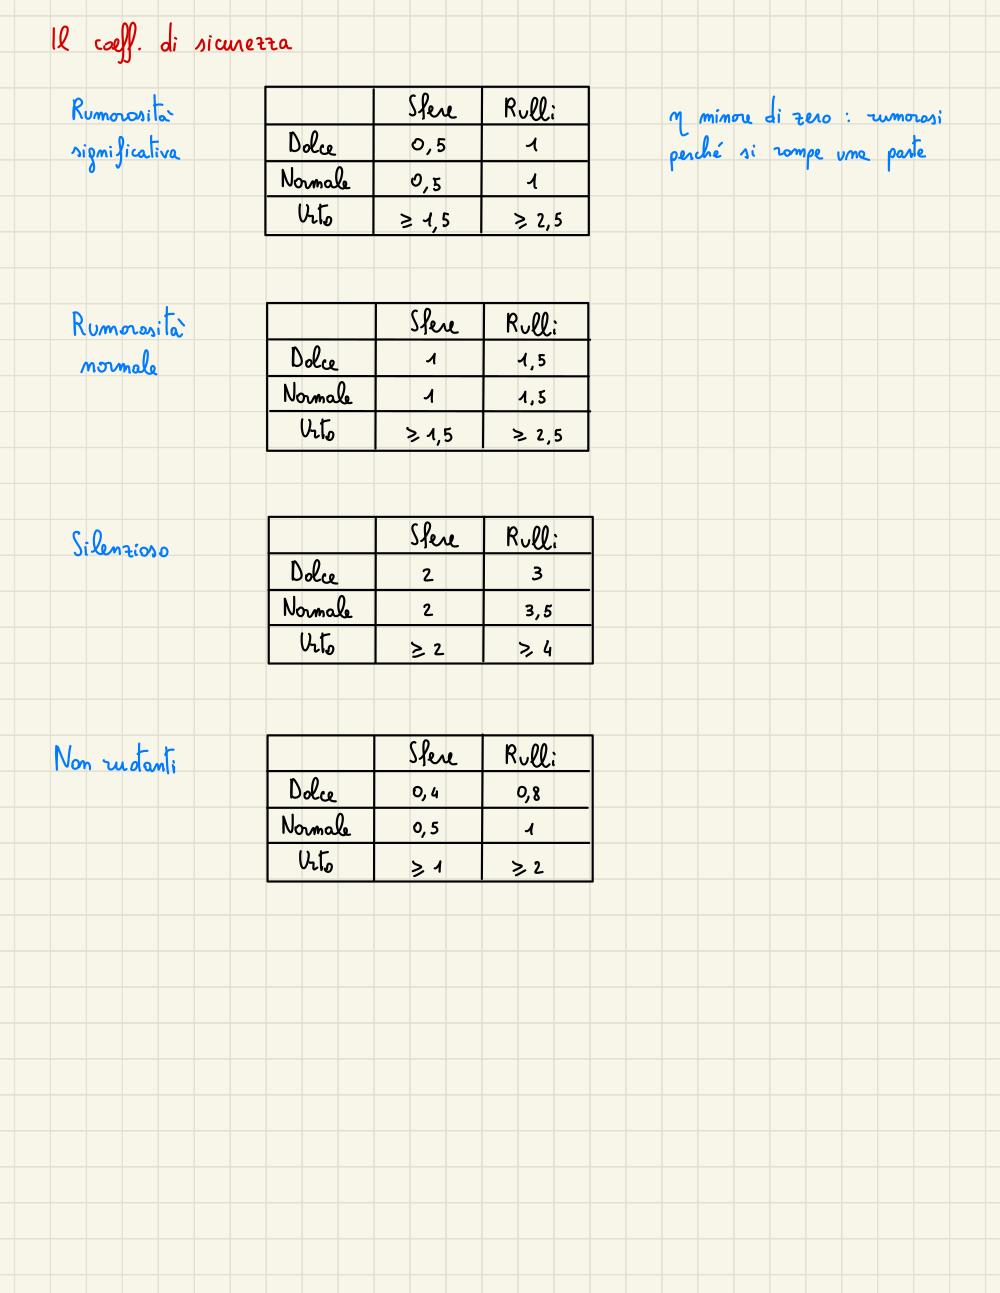 Il coeff. di sicurezza
Rumorosità
significativa
Sfere Rulli
Dolce 0,5 1
Normale 0,5 1
Urto ⩾ 1,5 ⩾ 2,5
η minore di zero : rumorosi
perché si rompe una parte
Rumorosità
normale
Sfere Rulli
Dolce 1 1,5
Normale 1 1,5
Urto ⩾ 1,5 ⩾ 2,5
Silenzioso
Sfere Rulli
Dolce 2 3
Normale 2 3,5
Urto ⩾ 2 ⩾ 4
Non ruotanti
Sfere Rulli
Dolce 0,4 0,8
Normale 0,5 1
Urto ⩾ 1 ⩾ 2